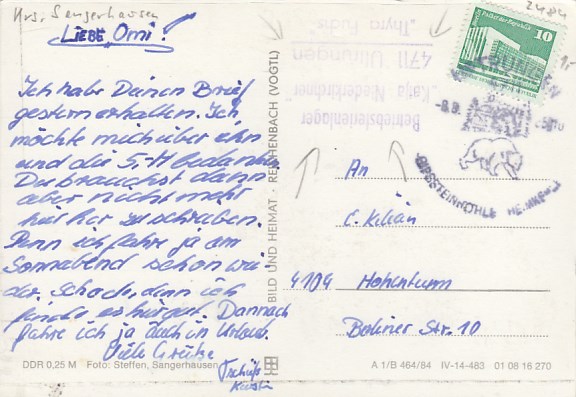 Krs. Sangerhausen
Liebe Omi!
Ich habe Deinen Brief
gestern erhalten. Ich
möchte mich über ihn
und die 5,-M bedanken.
Du brauchst dann
aber nicht mehr
hier her zu schreiben.
Denn ich fahre ja am
Sonnabend schon wie
der. Schade, denn ich
finde es hier gut. Dannach
fahre ich ja auch in Urlaub.
Viele Grüße
Tschüß
Kerstin
DDR 0,25 M Foto: Steffen, Sangerhausen
BILD UND HEIMAT · REICHENBACH (VOGTL)
Betriebsferienlager
"Katja Niederkirchner"
4711 Uftrungen
"Thyra Fuchs"
2484
Palast der Republik
10
DDR
UFTRUNGEN
HEIMKEHLE
GIPSSTEINHÖHLE
An
C. Kilian
4104 Hohenturm
Berliner Str. 10
A 1/B 464/84 IV-14-483 01 08 16 270